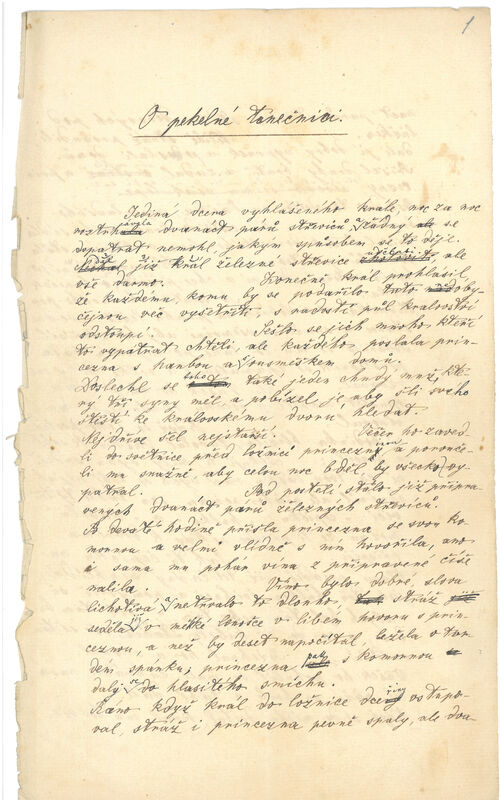 1
O pekelné tanečnici.
Jediná dcera vyhlášeného krále, noc za noc
roztrhala dvanáct párů střevíců a žádný se
dopátrat nemohl, jakým spůsobem se to děje.
již král železné střevíce ale
vše darmo. Konečně král prohlásil,
že každému, komu by se podařilo tuto neoby-
čejnou věc vyšetřiti, s radostí půl království
odstoupí. Sešlo se jich mnoho, kteří
toi vypátrat chtěli, ale každého poslala prin-
cezna s hanbou a s ousměškem domů.
Doslechl se toho také jeden chudý muž, kte-
rý tři syny měl a pobízel je, aby šli svého
štěstí ke královskému dvoru hledat.
Nejdříve šel nejstarší. Večer ho zaved-
li do světnice před ložnicí princezny a poruče-
li mu snažně, aby celou noc bděl by všecko vy-
pátral. Pod postelí stálo již připra-
vených dvanáct párů železných střevíců.
O deváté hodině přišla princezna se svou ko-
mornou a velmi vlídně s ním hovořila, ano
i sama mu pohár vína z připravené číše
nalila. Víno bylo dobré, slova
lichotivá a netrvalo to dlouho, stráž
seděla v měkké lenošce v libém hovoru s prin-
ceznou, a než by deset napočítal, ležela v tvr-
dém spánku; princezna pak s komornou
daly se do hlasitého smíchu.
Ráno když král do ložnice dcery vstupo-
val, stráž i princezna pevně spaly, ale dva-